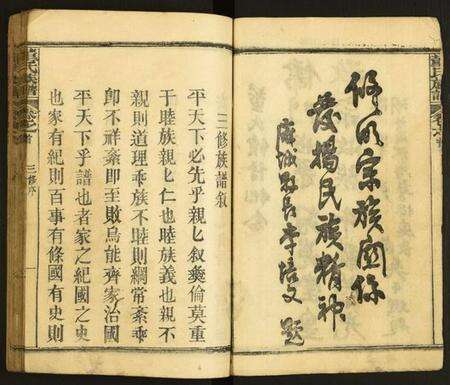 修明宗族關係
發揚民族精神
蒲城縣長李培文題
三修族譜敘
平天下必先乎親親叙彝倫莫重
于睦族親親仁也睦族義也親不
親則道理乖族不睦則綱常紊乖
卽不祥紊卽至敗烏能齊家治國
平天下乎譜也者家之紀國之史
也家有紀則百事有條國有史則
氏族譜
卷之首
三修序